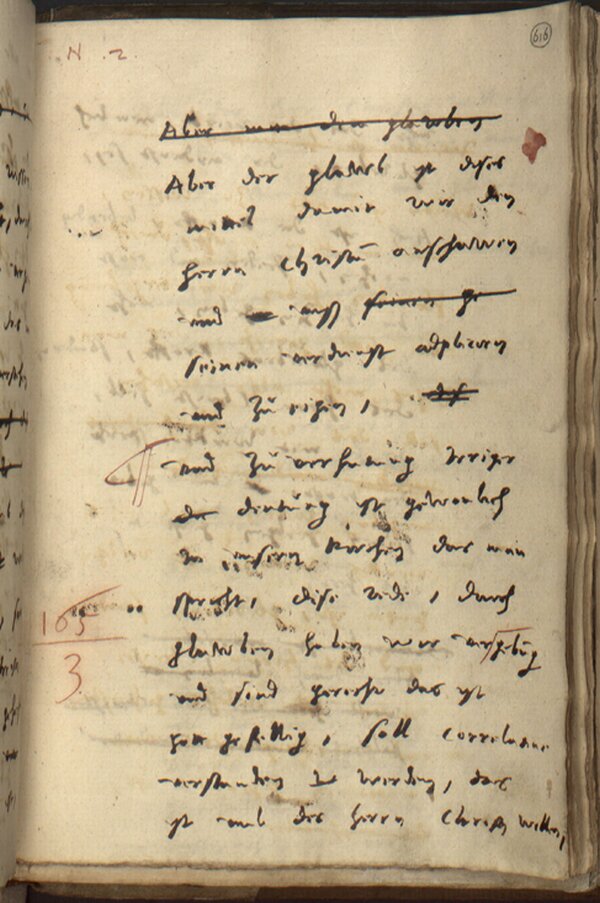 N. 2.
616
Aber man den glauben
Aber der glaub ist dises
mittel damit wir den
herrn Christum anschawen
und auß seinen ge
seinen verdienst applicirn
und zu eigen,
und zu verhutung irriger
deutung ist gebreulich
in unsern Kirchen das man
spricht, dise rede, durch
165
3
glauben haben wir vergebung
und sind gerecht das ist
gott gefellig, soll correlative
verstanden werden, das
ist umb des herrn Christi willen,